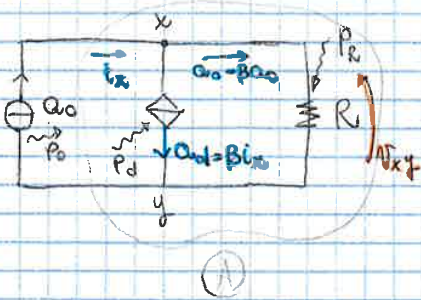 x
i_x
a_0 - βa_0
P_R
a_0
R
P_0
P_d
a_d = βi_x
v_xy
y
A